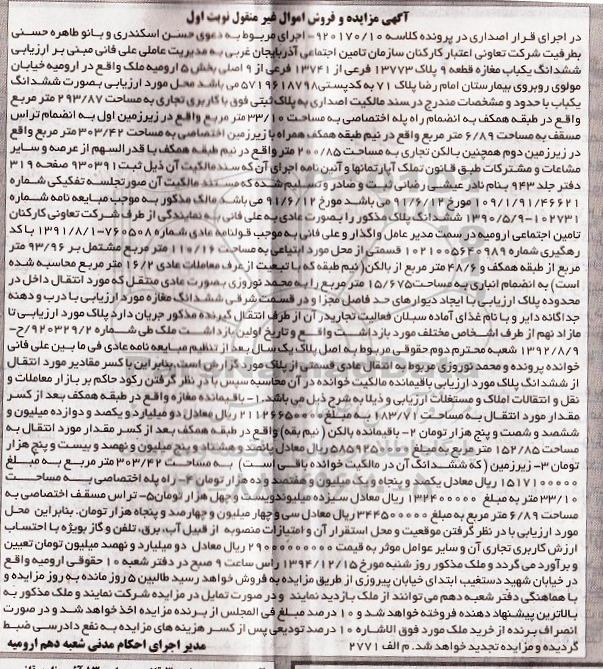 آگهی مزایده و فروش اموال غیر منقول نوبت اول
در اجرای قرار اصداری در پرونده کلاسه ۹۲۰۱۷۰/۱۰ اجرای مربوط به دعوی حسن اسکندری و بانو طاهره حسنی
بطرفیت شرکت تعاونی اعتبار کارکنان سازمان تامین اجتماعی آذربایجان غربی به مدیریت عاملی علی فانی مبنی بر ارزیابی
ششدانگ یکباب مغازه قطعه ۹ پلاک ۱۳۷۷۳ فرعی از ۱۳۷۴۱ فرعی از ۹ اصلی بخش ۵ ارومیه ملک واقع در ارومیه خیابان
مولوی روبروی بیمارستان امام رضا پلاک ۷۱ به کدپستی ۵۷۱۹۶۱۸۷۹۸ می باشد محل مورد ارزیابی بصورت ششدانگ
یکباب با حدود و مشخصات مندرج در سند مالکیت اصداری به پلاک ثبتی فوق با کاربری تجاری به مساحت ۲۹۳/۸۷ متر مربع
واقع در طبقه همکف به انضمام راه پله اختصاصی به مساحت ۳۳/۱۰ متر مربع واقع در زیرزمین اول به انضمام تراس
مسقف به مساحت ۶/۸۹ متر مربع واقع در نیم طبقه همکف همراه با زیرزمین اختصاصی به مساحت ۳۰۳/۴۲ متر مربع واقع
در زیرزمین دوم همچنین بالکن تجاری به مساحت ۲۰۰/۸۵ متر واقع در نیم طبقه همکف با قدرالسهم از عرصه و سایر
مشاعات و مشترکات طبق قانون تملک آپارتمانها و آئین نامه اجرای آن که سند مالکیت آن ذیل ثبت ۹۳۰۳۹۱ صفحه ۳۱۹
دفتر جلد ۹۴۳ بنام نادر عیشی رضائی ثبت و صادر و تسلیم شده که مستند مالکیت آن صورتجلسه تفکیکی شماره
۱۰۹/۱/۹۱/۴۶۶۲۱ مورخ ۹۱/۶/۱۲ می باشد مورخ ۹۱/۶/۱۲ می باشد مالک مذکور به موجب مبایعه نامه شماره
۱۰۲۷۳۱-۱۳۹۰/۵/۹ ششدانگ پلاک مذکور را بصورت عادی به علی فانی به نمایندگی از طرف شرکت تعاونی کارکنان
تامین اجتماعی ارومیه در سمت مدیر عامل واگذار و علی فانی به موجب قولنامه عادی شماره ۷۶۰۵۰۸-۱۳۹۱/۸/۱ با کد
رهگیری شماره ۱۰۲۱۰۰۵۶۴۰۹۸۹ قسمتی از محل مورد ابتیاعی به مساحت ۱۱۰/۱۶ متر مربع مشتمل بر ۹۳/۹۶ متر
مربع از طبقه همکف و ۴۸/۶ متر مربع از بالکن (نیم طبقه که با تبعیت از عرف معاملات عادی ۱۶/۲ متر مربع محاسبه شده
است) به انضمام انباری به مساحت ۱۵/۶۷۵ متر مربع را به محمد نوروزی بصورت عادی منتقل که مورد انتقال داخل در
محدوده پلاک ارزیابی با ایجاد دیوارهای حد فاصل مجزا و در قسمت شرقی ششدانگ مغازه مورد ارزیابی با درب و دهنه
جداگانه دایر و با نام غذای آماده سبلان فعالیت تجاری در آن از طرف انتقال گیرنده مذکور جریان دارد پلاک مورد ارزیابی تا
مازاد نهم از طرف اشخاص مختلف مورد بازداشت واقع و تاریخ اولین بازداشت ملک طی شماره ۹۲۰۳۲۹/۲/ح-
۱۳۹۲/۸/۹ شعبه محترم دوم حقوقی مربوط به اصل پلاک یک سال بعد از تنظیم مبایعه نامه عادی فی ما بین علی فانی
خوانده پرونده و محمد نوروزی مربوط به انتقال عادی قسمتی از پلاک مورد گزارش است. بنابراین با کسر مقادیر مورد انتقال
از ششدانگ پلاک مورد ارزیابی باقیمانده مالکیت خوانده در آن محاسبه سپس با در نظر گرفتن رکود حاکم بر بازار معاملات و
نقل و انتقالات املاک و مستغلات ارزیابی و ذیلا به شرح ذیل می باشد. ۱- باقیمانده مغازه واقع در طبقه همکف بعد از کسر
مقدار مورد انتقال به مساحت ۱۸۳/۷۱ متر مربع به مبلغ ۲۱۱۲۶۶۵۰۰۰۰ ریال معادل دو میلیارد و یکصد و دوازده میلیون و
ششصد و شصت و پنج هزار تومان ۲- باقیمانده بالکن (نیم طبقه) واقع در طبقه همکف بعد از کسر مقدار مورد انتقال به
مساحت ۱۵۲/۸۵ متر مربع به مبلغ ۵۸۵۹۲۵۰۰۰۰ ریال معادل پانصد و هشتاد و پنج میلیون و نهصد و بیست و پنج هزار
تومان ۳- زیرزمین (که ششدانگ آن در مالکیت خوانده باقی است) به مساحت ۳۰۳/۴۲ متر مربع به مبلغ
۱۵۱۷۱۰۰۰۰۰ ریال معادل یکصد و پنجاه و یک میلیون و هفتصد و ده هزار تومان ۴- راه پله اختصاصی به مساحت
۳۳/۱۰ متر به مبلغ ۱۳۲۴۰۰۰۰۰ ریال معادل سیزده میلیون و دویست و چهل هزار تومان ۵- تراس مسقف اختصاصی به
مساحت ۶/۸۹ متر مربع به مبلغ ۳۴۴۵۰۰۰۰۰ ریال معادل سی و چهار میلیون و چهارصد و پنجاه هزار تومان. بنابراین محل
مورد ارزیابی با در نظر گرفتن موقعیت و محل استقرار آن و امتیازات منصوبه از قبیل آب، برق، تلفن و گاز بویژه با احتساب
ارزش کاربری تجاری آن و سایر عوامل موثر به قیمت ۲۹۰۰۰۰۰۰۰۰۰ ریال معادل دو میلیارد و نهصد میلیون تومان تعیین
و برآورد می گردد و ملک مذکور روز شنبه مورخ ۱۳۹۴/۱۲/۱۵ راس ساعت ۹ صبح در دفتر شعبه ۱۰ حقوقی ارومیه واقع
در خیابان شهید دستغیب ابتدای خیابان پیروزی از طریق مزایده به فروش خواهد رسید طالبین ۵ روز مانده به روز مزایده و
با هماهنگی دفتر شعبه دهم می توانند از ملک بازدید نمایند و در صورت تمایل در مزایده شرکت نمایند و ملک مذکور به
بالاترین پیشنهاد دهنده فروخته خواهد شد و ۱۰ درصد مبلغ فی المجلس از برنده مزایده اخذ خواهد شد و در صورت
انصراف برنده از خرید ملک مورد فوق الاشاره ۱۰ درصد تودیعی پس از کسر هزینه های مزایده به نفع دادرسی ضبط
گردیده و مزایده تجدید خواهد شد. م الف ۲۷۷۱
مدیر اجرای احکام مدنی شعبه دهم ارومیه